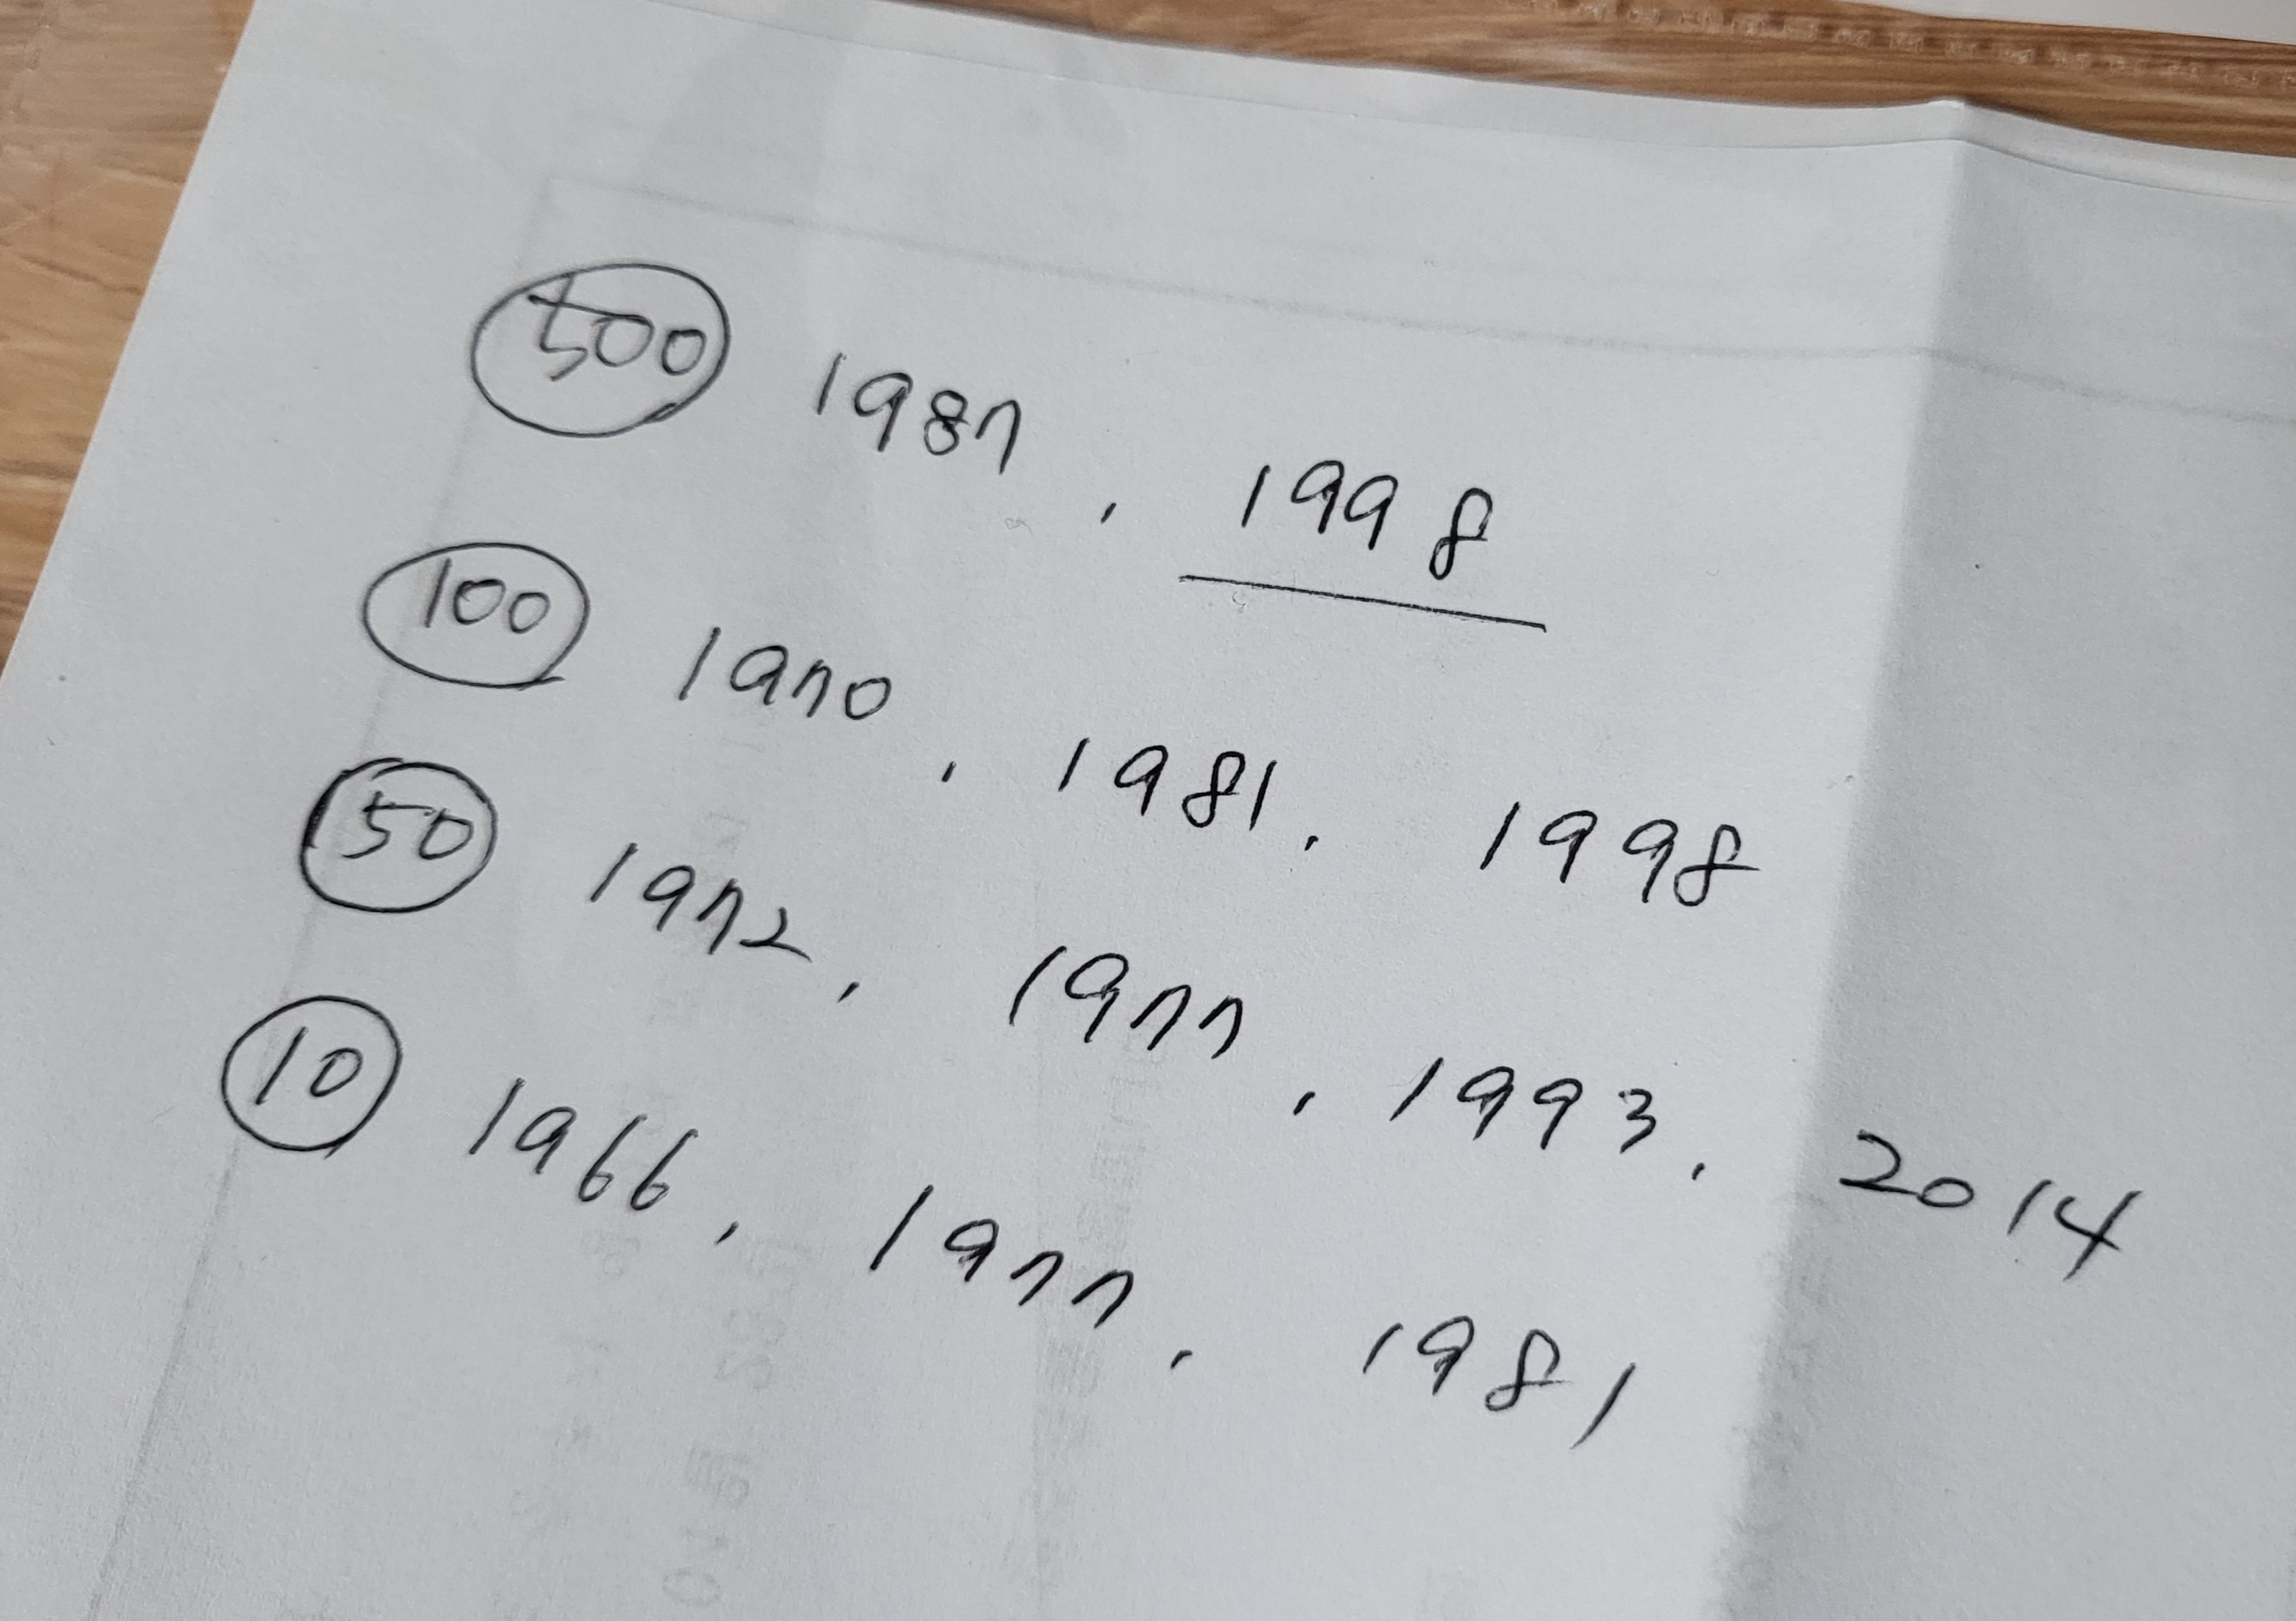 500 1987, 1998
100 1970, 1981, 1998
50 1972, 1977, 1993, 2014
10 1966, 1977, 1981